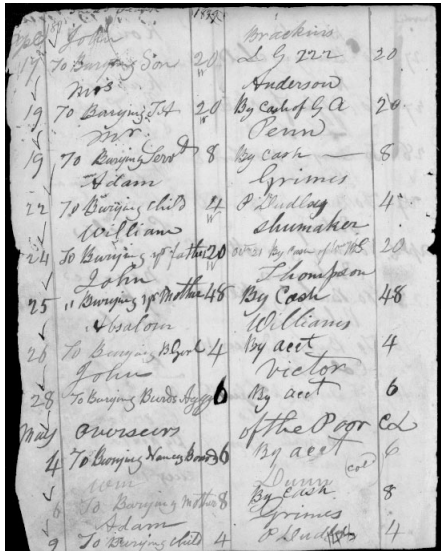 1839
John Brackins
17 To Burying Son 20 L G 222 20
Mrs Anderson
19 To Burying 20 By Cash of G A 20
Mr. Penn
19 To Burying Servd 8 By cash — 8
Adam Grimes
22 To Burying child 4 P Dudlay 4
William Shumaker
24 To Burying yr father 20 By Cash 20
John Thompson
25 " Burying yr Mother 48 By Cash 48
Absalom Williams
26 To Burying B Girl 4 By acct 4
John Victor
28 To Burying Burds Aggy 6 By acct 6
May Overseers of the Poor Col
4 To Burying Nancy 6 By acct 6
Col
Wm Dunn
6 To Burying Mother 8 By Cash 8
Adam Grimes
9 To Burying child 4 P Dudlay 4